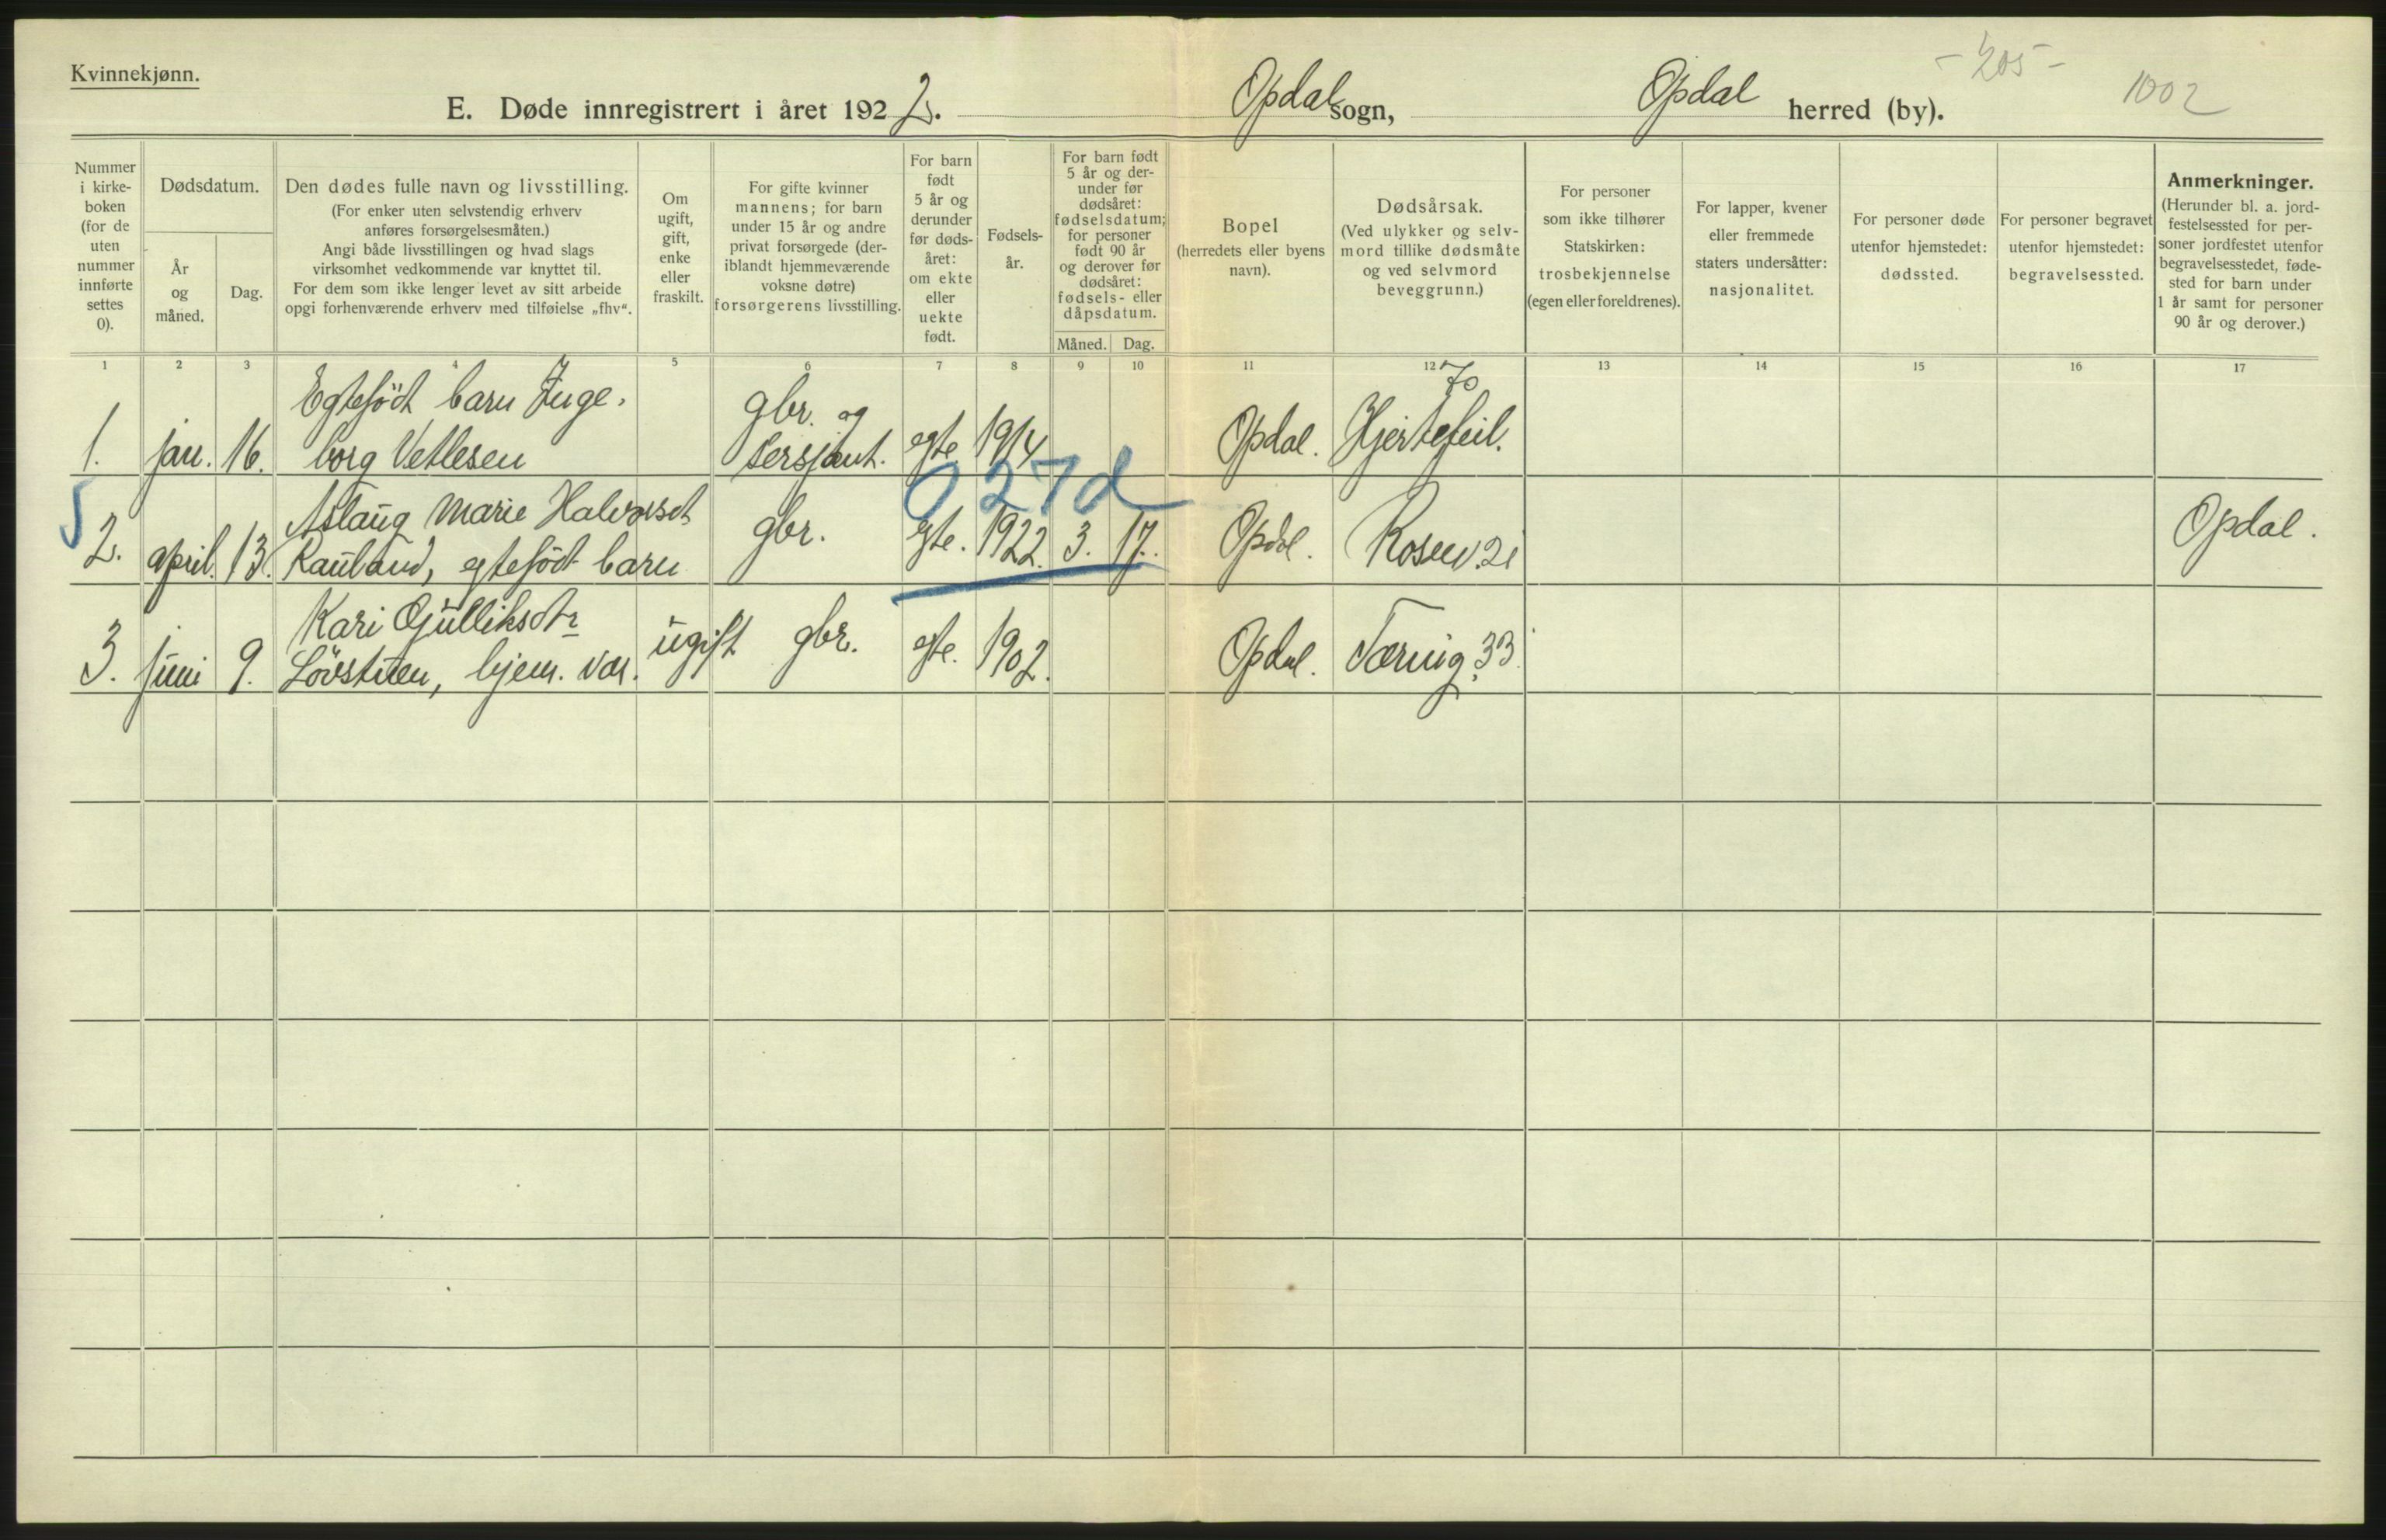 Kvinnekjønn.
- 205 -
1002
E. Døde innregistrert i året 1922. Opdal sogn, Opdal herred (by).
Nummer
i kirke-
boken
(for de
uten
nummer
innførte
settes
0).
Dødsdatum.
År
og
måned.
Dag.
Den dødes fulle navn og livsstilling.
(For enker uten selvstendig erhverv
anføres forsørgelsesmåten.)
Angi både livsstillingen og hvad slags
virksomhet vedkommende var knyttet til.
For dem som ikke lenger levet av sitt arbeide
opgi forhenværende erhverv med tilføielse „fhv“.
Om
ugift,
gift,
enke
eller
fraskilt.
For gifte kvinner
mannens; for barn
under 15 år og andre
privat forsørgede (der-
iblandt hjemmeværende
voksne døtre)
forsørgerens livsstilling.
For barn
født
5 år og
derunder
før døds-
året:
om ekte
eller
uekte
født.
Fødsels-
år.
For barn født
5 år og der-
under før
dødsåret:
fødselsdatum;
for personer
født 90 år
og derover før
dødsåret:
fødsels- eller
dåpsdatum.
Måned. Dag.
Bopel
(herredets eller byens
navn).
Dødsårsak.
(Ved ulykker og selv-
mord tillike dødsmåte
og ved selvmord
beveggrunn.)
For personer
som ikke tilhører
Statskirken:
trosbekjennelse
(egen eller foreldrenes).
For lapper, kvener
eller fremmede
staters undersåtter:
nasjonalitet.
For personer døde
utenfor hjemstedet:
dødssted.
For personer begravet
utenfor hjemstedet:
begravelsessted.
Anmerkninger.
(Herunder bl. a. jord-
festelsessted for per-
soner jordfestet utenfor
begravelsesstedet, føde-
sted for barn under
1 år samt for personer
90 år og derover.)
1 2 3 4 5 6 7 8 9 10 11 12 13 14 15 16 17
Egtefödt barn Inge- gbr. og 70
1. jan. 16. borg Vetlesen sersjant. egte 1914 Opdal. Hjertefeil.
0 27 d
Aslaug Marie Halvorsdt
2. april. 13. Rauland, egtefödt barn gbr. egte. 1922. 3. 17. Opdal. Rosen. 21 Opdal.
Kari Gulliksdtr
3. juni 9. Lövstuen, hjem. vær. ugift gbr. egte. 1902. Opdal. Tæring. 33